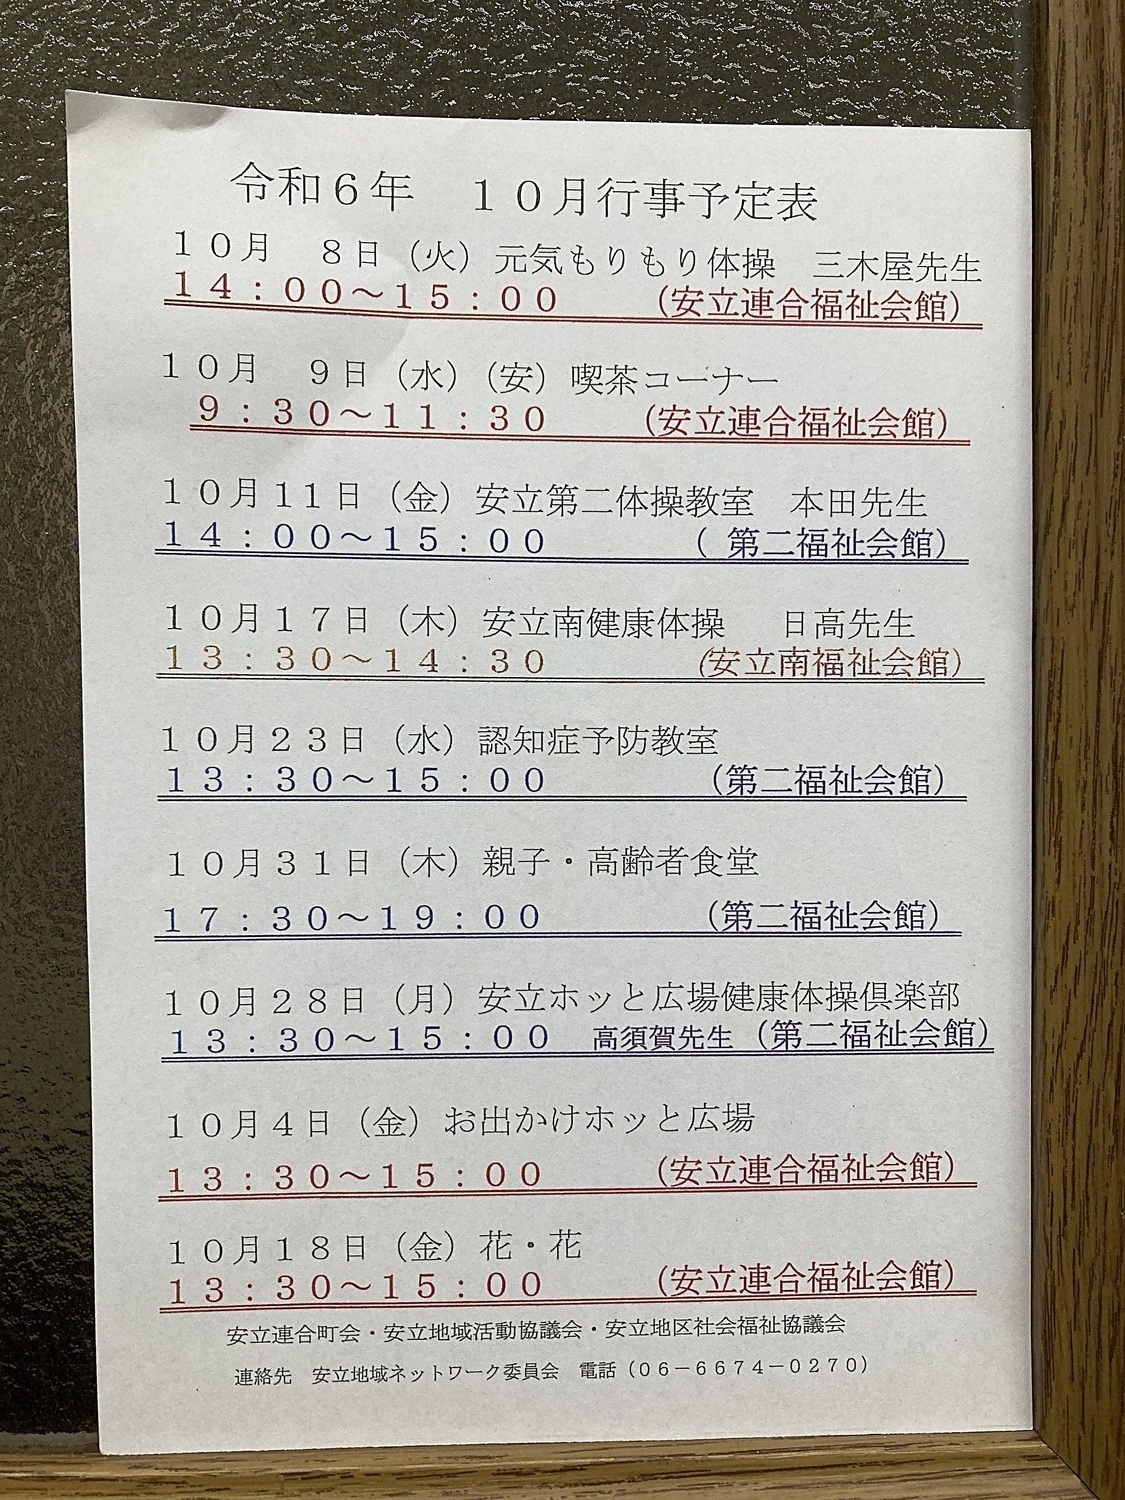 令和６年　１０月行事予定表
１０月　８日（火）元気もりもり体操　三木屋先生
１４：００～１５：００　（安立連合福祉会館）
１０月　９日（水）（安）喫茶コーナー
９：３０～１１：３０　（安立連合福祉会館）
１０月１１日（金）安立第二体操教室　本田先生
１４：００～１５：００　（ 第二福祉会館）
１０月１７日（木）安立南健康体操　日高先生
１３：３０～１４：３０　（安立南福祉会館）
１０月２３日（水）認知症予防教室
１３：３０～１５：００　（第二福祉会館）
１０月３１日（木）親子・高齢者食堂
１７：３０～１９：００　（第二福祉会館）
１０月２８日（月）安立ホッと広場健康体操倶楽部
１３：３０～１５：００　高須賀先生（第二福祉会館）
１０月４日（金）お出かけホッと広場
１３：３０～１５：００　（安立連合福祉会館）
１０月１８日（金）花・花
１３：３０～１５：００　（安立連合福祉会館）
安立連合町会・安立地域活動協議会・安立地区社会福祉協議会
連絡先　安立地域ネットワーク委員会　電話（０６－６６７４－０２７０）